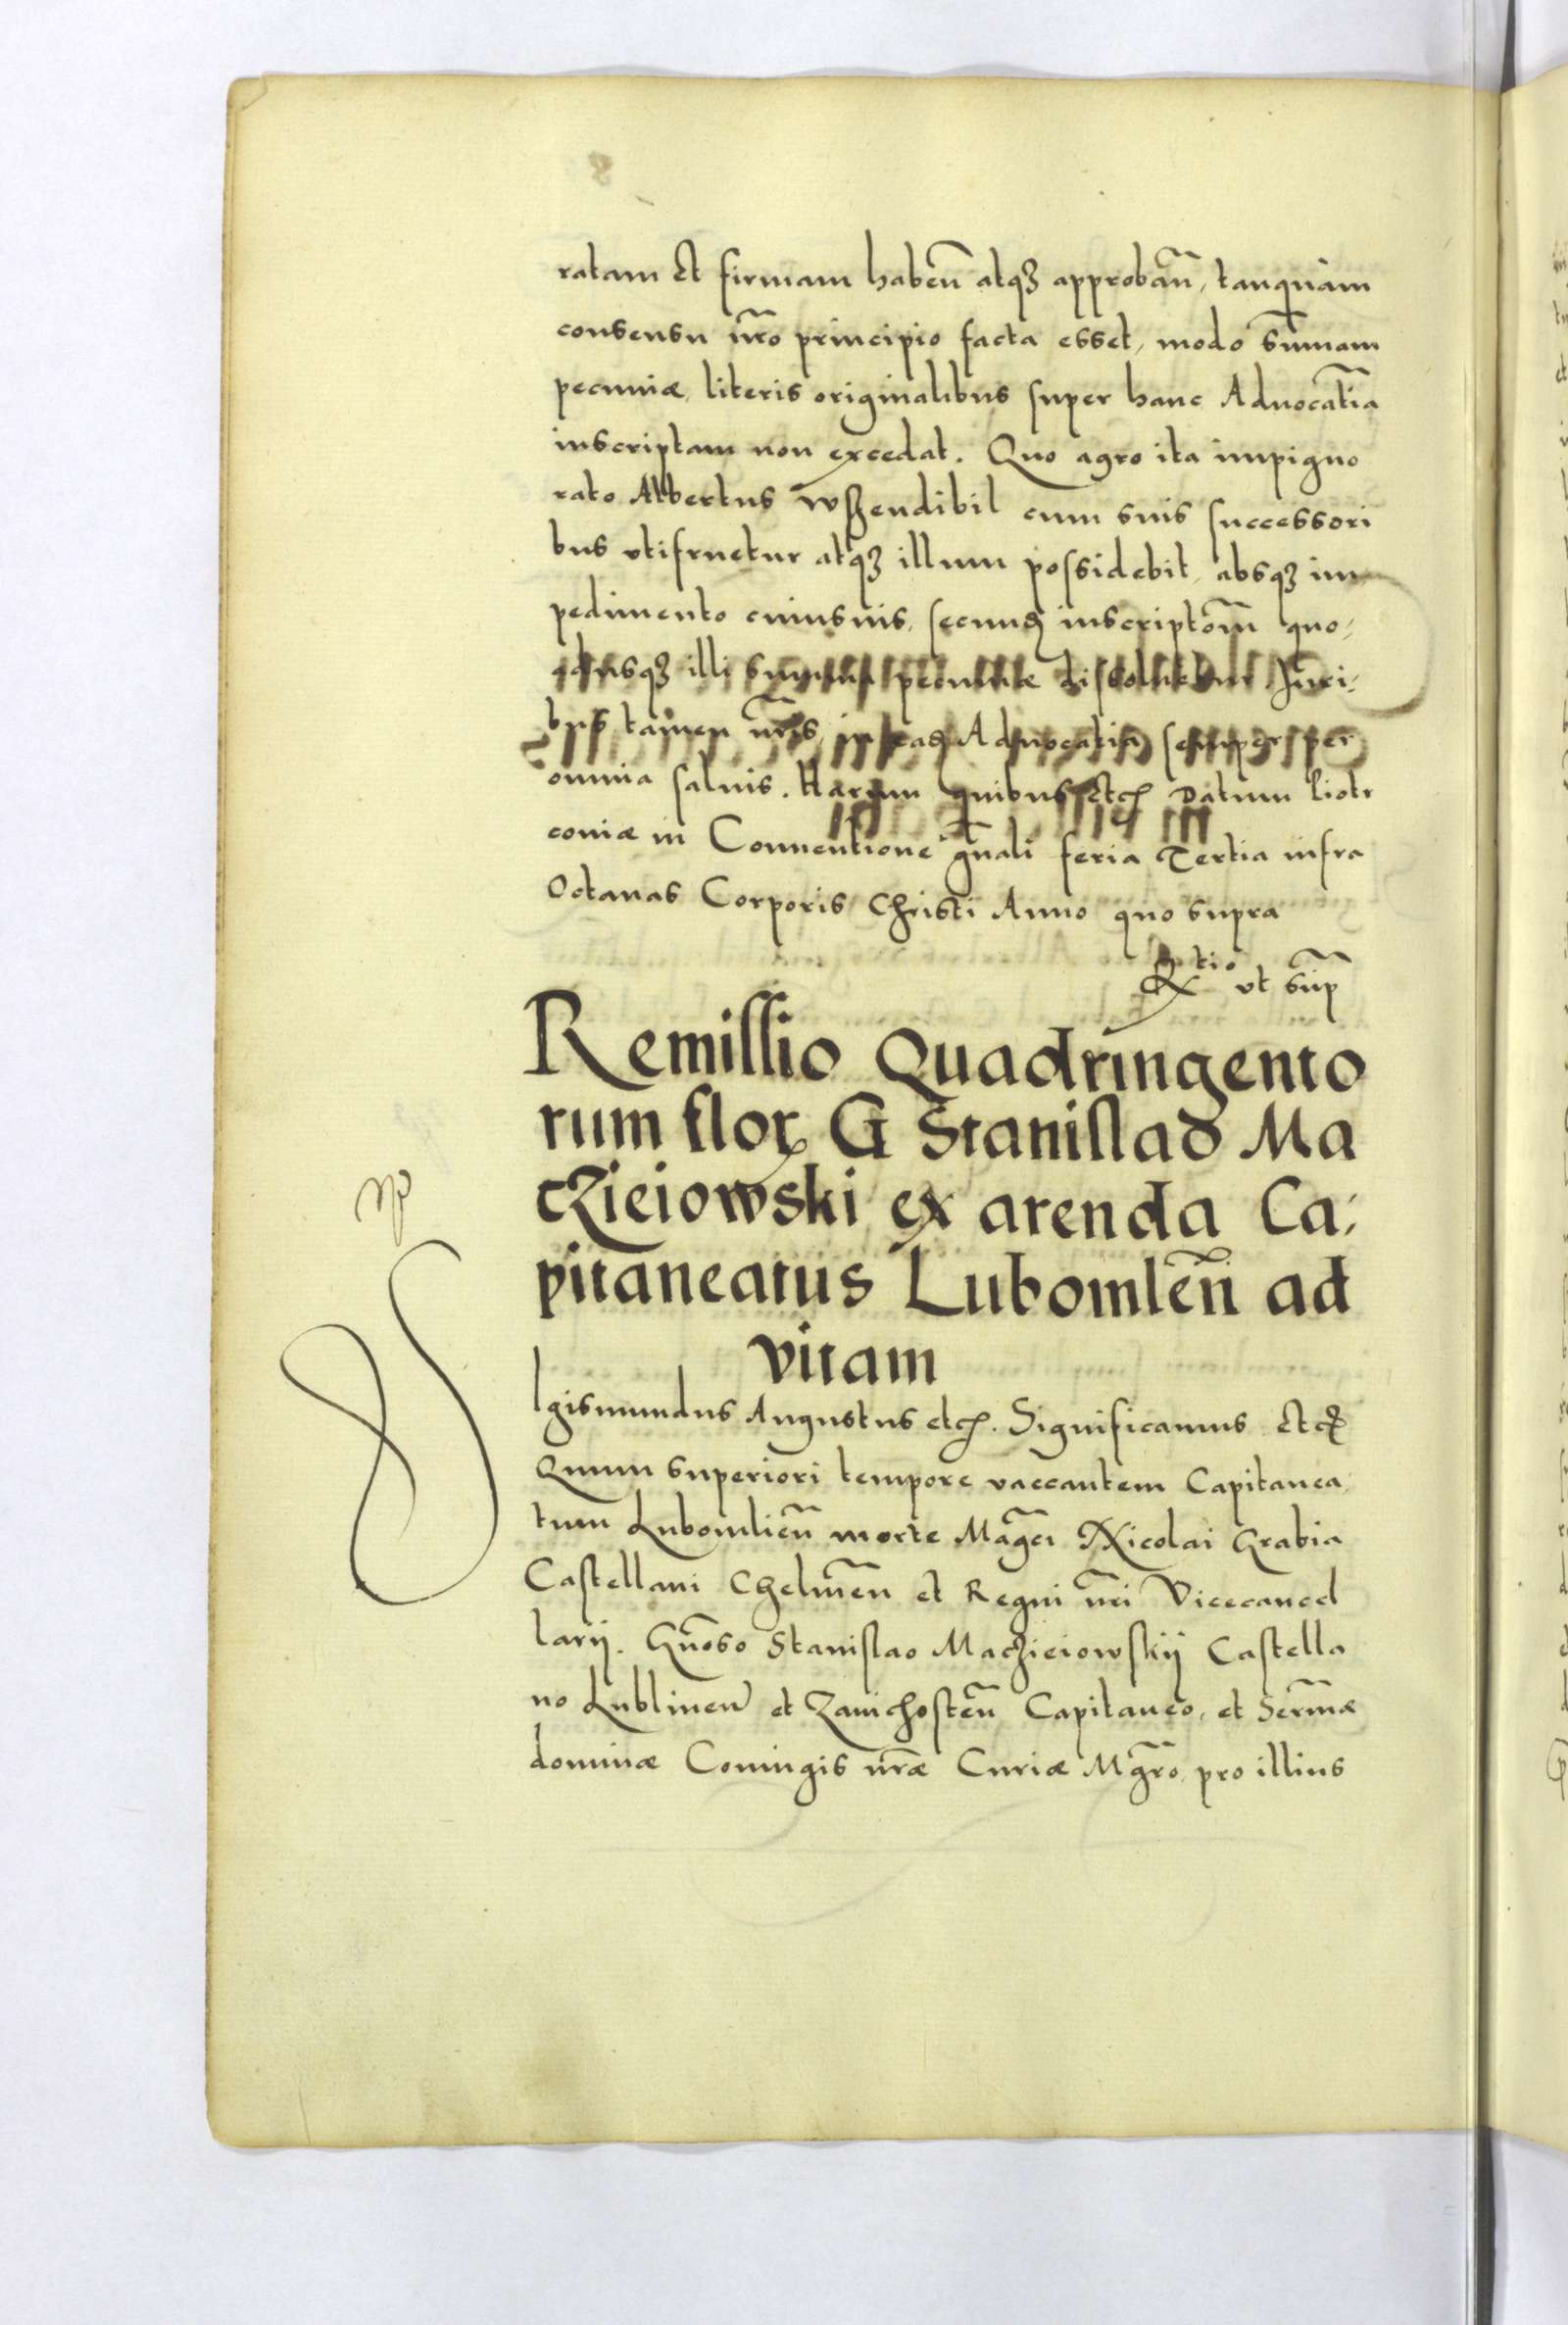 ratam Et firmam habeñ atqꝫ approbañ, tanquàm
consensu ñro principio facta esset, modo sũmam
pecuniæ literis originalibus super hanc Aduocatĩa
inscriptam non excedat. Quo agro ita impigno
rato Albertus Wßendibil cum suis successori
bus vtifruetur atqꝫ illum possidebit, absqꝫ im
pedimento cuiusuis, secund inscriptom̃ quo⸗
adusqꝫ illi summa pecuniæ dissoluetur. Juri⸗
bus tamen ñris, in ead Aduocatia semper per
omnia saluis. Harum quibus etc̃ Datum Piotr
coniæ in Conuentione gñali feria Tertia infra
Octauas Corporis Christi Anno quo supra
Rtio vt sup̃
Remissio Quadringento
rum floꝝ G Stanislao Ma
cZieiowski ex arenda Ca⸗
pitaneatus Lubomleñ ad
vitam
Igismundus Augustus etc̃. Significamus Etc̃
Quum superiori tempore vaccantem Capitanea
tum Lubomlieñ morte Magc̃i Nicolai Grabia
Castellani Chelmeñ et Regni ñri Vicecancel
larij. Gñoso Stanislao Maczieiowskij Castella
no Lublineñ et Zawichosteñ Capitaneo, et Serm̃æ
dominæ Coniugis ñræ Curiæ Mgr̃o pro illius